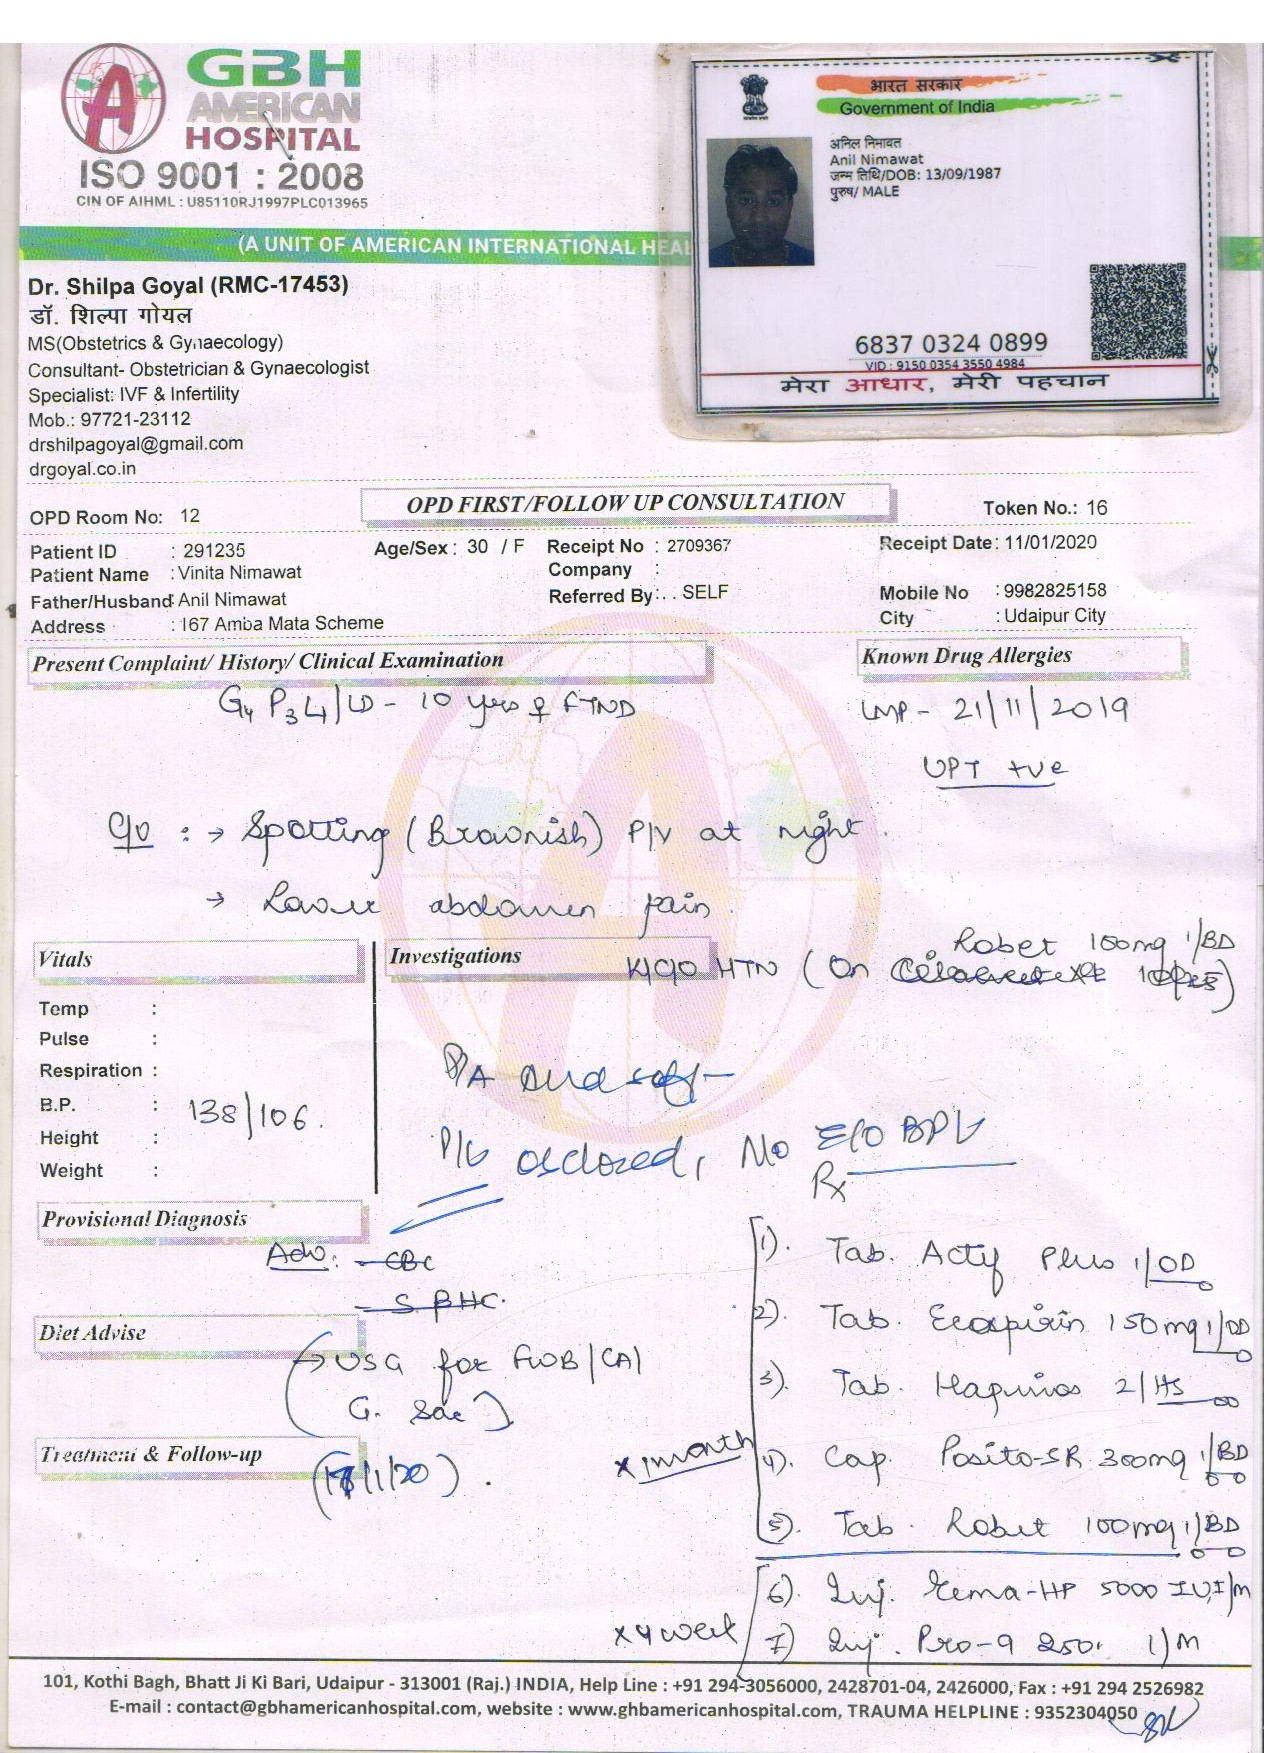 GBH
AMERICAN
HOSPITAL
ISO 9001 : 2008
CIN OF AIHML : U85110RJ1997PLC013965
(A UNIT OF AMERICAN INTERNATIONAL HEAL
भारत सरकार
Government of India
अनिल निमावत
Anil Nimawat
जन्म तिथि/DOB: 13/09/1987
पुरुष/ MALE
6837 0324 0899
VID : 9150 0354 3550 4984
मेरा आधार, मेरी पहचान
Dr. Shilpa Goyal (RMC-17453)
डॉ. शिल्पा गोयल
MS(Obstetrics & Gynaecology)
Consultant- Obstetrician & Gynaecologist
Specialist: IVF & Infertility
Mob.: 97721-23112
drshilpagoyal@gmail.com
drgoyal.co.in
OPD Room No: 12
OPD FIRST/FOLLOW UP CONSULTATION
Token No.: 16
Patient ID : 291235 Age/Sex : 30 / F Receipt No : 2709367 Receipt Date: 11/01/2020
Patient Name : Vinita Nimawat Company :
Father/Husband: Anil Nimawat Referred By: . . SELF Mobile No : 9982825158
Address : 167 Amba Mata Scheme City : Udaipur City
Present Complaint/ History/ Clinical Examination
Known Drug Allergies
G4 P3 L1/LD - 10 yrs ♀ FTND
LMP - 21/11/2019
UPT +ve
C/O : → Spotting (Brownish) P/V at night.
→ Lower abdomen pain.
Vitals
Investigations
Robet 100mg 1/BD
K/C/O HTN (On
Temp :
Pulse :
Respiration :
B.P. : 138/106.
Height :
Weight :
P/A soft
P/V os closed, No E/O BPV
Rx
Provisional Diagnosis
Adv: - CBC
- S. BHCG
Diet Advise
→ USG for FWB/CA/
G. Sac)
Treatment & Follow-up
/1/20).
1). Tab. Actif Plus 1/OD
2). Tab. Ecospirin 150mg 1/OD
3). Tab. 2/HS
x 1 month
4). Cap. Posito-SR 300mg 1/BD
5). Tab. Robet 100mg 1/BD
6). Inj. Gema-HP 5000 IU, I/M
x 4 week
7) Inj. Pro-9 250 I/M
101, Kothi Bagh, Bhatt Ji Ki Bari, Udaipur - 313001 (Raj.) INDIA, Help Line : +91 294-3056000, 2428701-04, 2426000, Fax : +91 294 2526982
E-mail : contact@gbhamericanhospital.com, website : www.ghbamericanhospital.com, TRAUMA HELPLINE : 9352304050